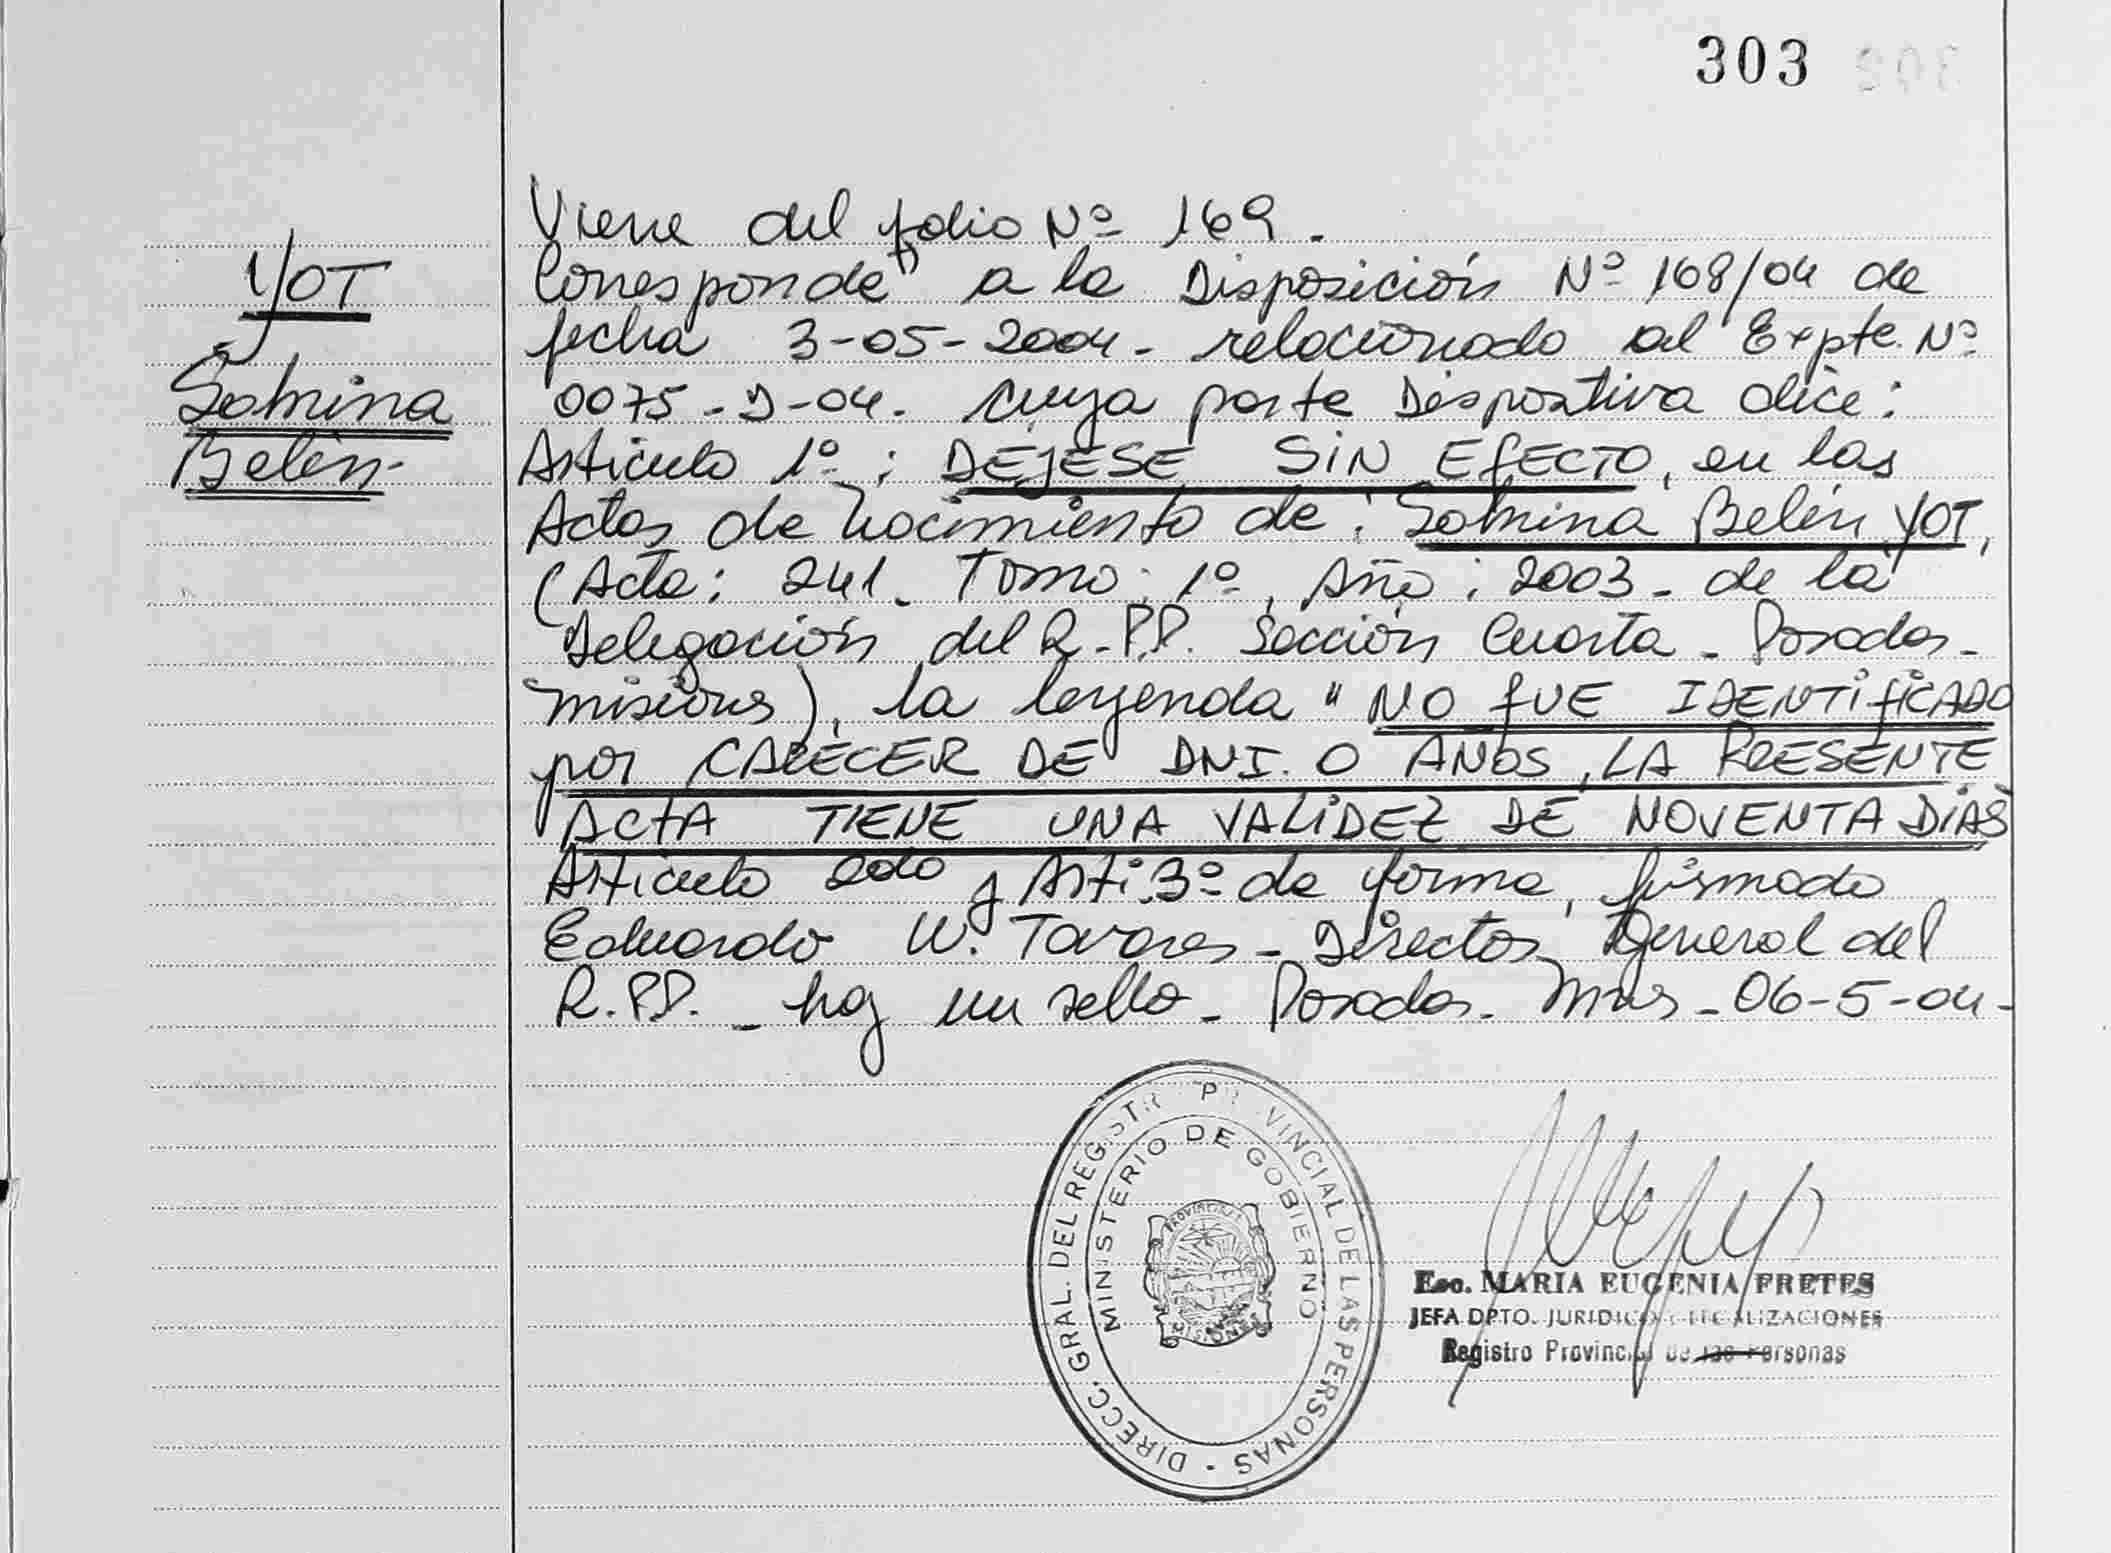 303
YOT
Sabrina
Belén-
Viene del folio Nº 169.
Corresponde a la Disposición Nº 168/04 de
fecha 3-05-2004- relacionado al Expte. Nº
0075-D-04. cuya parte Dispositiva dice:
Articulo 1º: DEJESE SIN EFECTO, en las
Actas de Nacimiento de: Sabrina Belén YOT,
(Acta: 241. Tomo: 1º, Año: 2003- de la
Delegación del R.P.P. Sección Cuarta - Posadas-
misiones), la leyenda "NO fUE IDENTIfiCADO
por CARECER DE DNI. O AÑOS, LA PRESENTE
ACtA TIENE UNA VALIDEZ DE NOVENTA DIAS
Articulo 2do y Arti.3º de forma, firmado
Eduardo W. Tavares - Director General del
R.PP. - hay un sello - Posadas. Mnes - 06-5-04-
DIRECC. GRAL. DEL REGISTR PROVINCIAL DE LAS PERSONAS -
MINISTERIO DE GOBIERNO
PROVINCIA
MISIONES
Esc. MARIA EUGENIA FRETES
JEFA DPTO. JURIDICO LEGALIZACIONES
Registro Provincial de las Personas